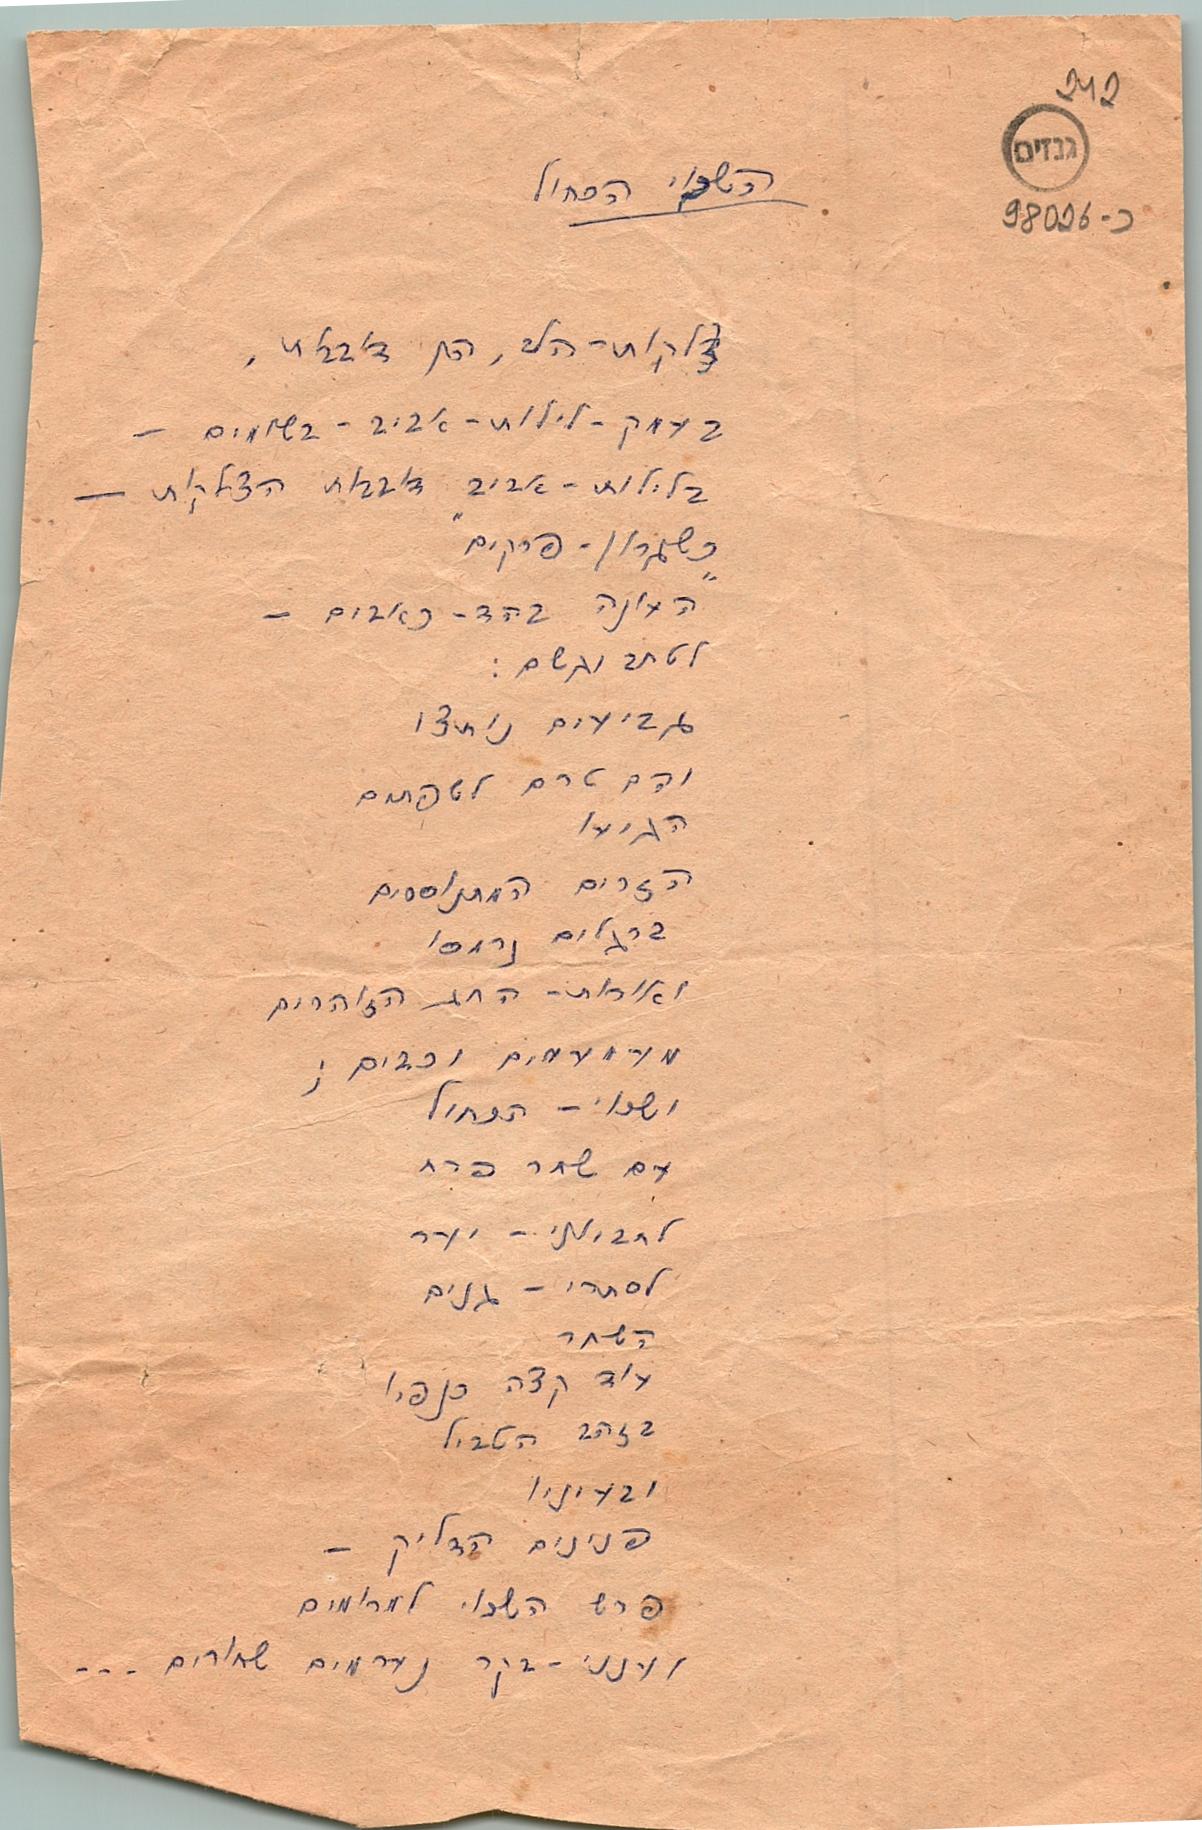 242
גנזים
כ-98026
השכוי הכחול
צלקות-הלב, הן דואבות,
בעמק-לילות-אביב-בשומים –
בלילות-אביב דואבות הצלקות –
כשגרון-פרקים"
"העונה בהד-כאבים –
לטחב וגשם:
גביעים נותצו
והם טרם לשפתים
הגיעו
הזרים המתנוססים
ברגלים נרמסו
ואורות-החג הזוהרים
מעמעמים וכבים;
ושכוי-הכחול
עם שחר פרח
לחביוני-יער
לסתרי-גנים
השחר
עוד קצה כנפיו
בזהב הטביל
ובעיניו
פנינים הדליק –
פרש השכוי למרומים
וענני-בקר נערמים שחורים ---